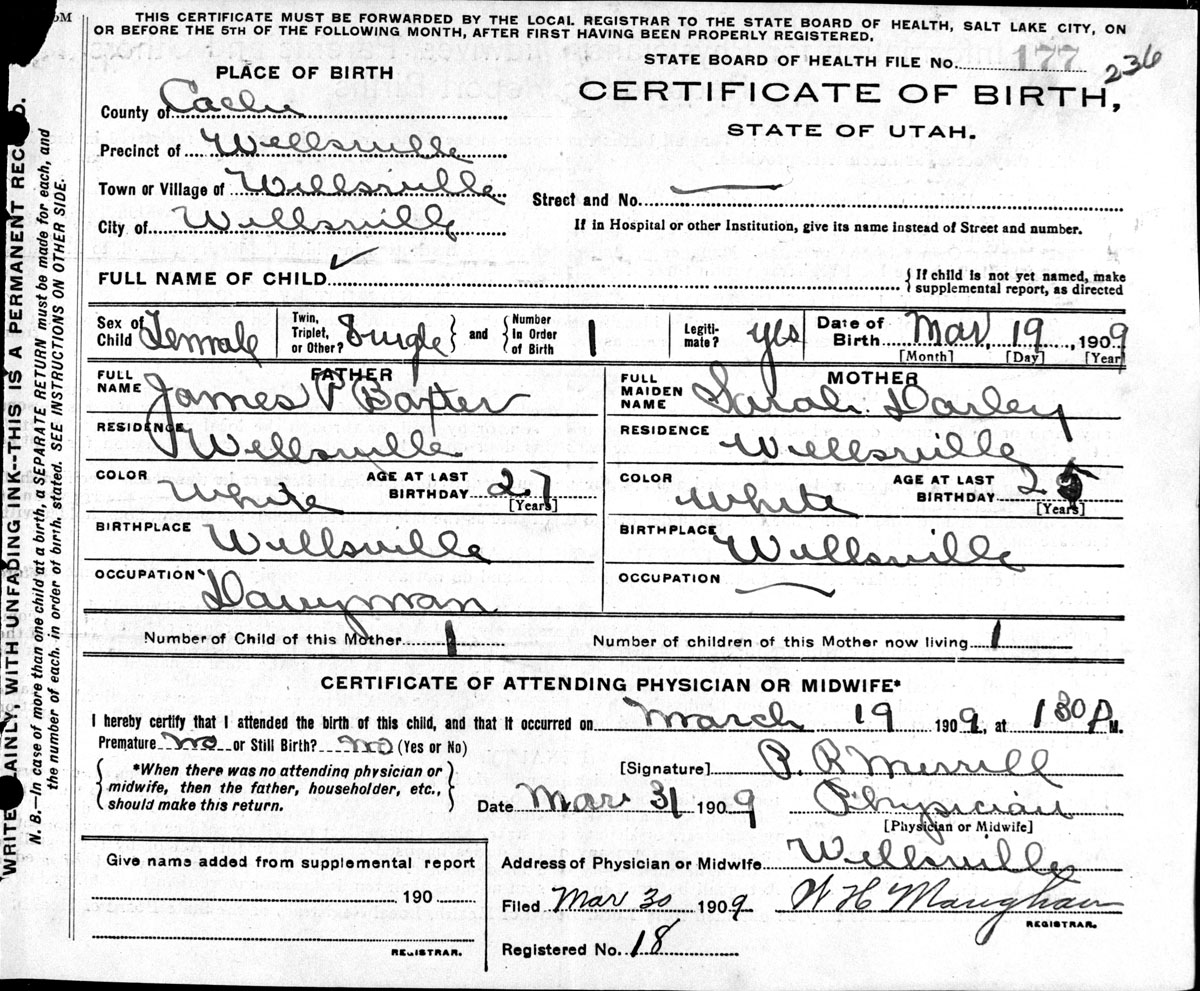 THIS CERTIFICATE MUST BE FORWARDED BY THE LOCAL REGISTRAR TO THE STATE BOARD OF HEALTH, SALT LAKE CITY, ON
OR BEFORE THE 5TH OF THE FOLLOWING MONTH, AFTER FIRST HAVING BEEN PROPERLY REGISTERED.
STATE BOARD OF HEALTH FILE No. 177 236
PLACE OF BIRTH
CERTIFICATE OF BIRTH,
STATE OF UTAH.
County of Cache
Precinct of Wellsville
Town or Village of Wellsville
Street and No. —
City of Wellsville
If in Hospital or other Institution, give its name instead of Street and number.
FULL NAME OF CHILD ✓ { If child is not yet named, make supplemental report, as directed
Sex of Child Female Twin, Triplet, or Other? Single } and { Number In Order of Birth 1 Legitimate? yes Date of Birth Mar, 19, 1909
[Month] [Day] [Year]
FATHER
MOTHER
FULL NAME James P Baxter
FULL MAIDEN NAME Sarah Darley
RESIDENCE Wellsville
RESIDENCE Wellsville
COLOR White AGE AT LAST BIRTHDAY 27 [Years]
COLOR White AGE AT LAST BIRTHDAY 25 [Years]
BIRTHPLACE Wellsville
BIRTHPLACE Wellsville
OCCUPATION Dairyman
OCCUPATION —
Number of Child of this Mother 1 Number of children of this Mother now living 1
CERTIFICATE OF ATTENDING PHYSICIAN OR MIDWIFE*
I hereby certify that I attended the birth of this child, and that it occurred on March 19 1909, at 1 30 P M.
Premature no or Still Birth? no (Yes or No)
*When there was no attending physician or
midwife, then the father, householder, etc.,
should make this return.
[Signature] P. R Merrill
Date Mar 31 1909 Physician
[Physician or Midwife]
Give name added from supplemental report
190
REGISTRAR.
Address of Physician or Midwife Wellsville
Filed Mar 30 1909 W H Maughan
REGISTRAR.
Registered No. 18
N. B.—In case of more than one child at a birth, a SEPARATE RETURN must be made for each, and
the number of each, in order of birth, stated. SEE INSTRUCTIONS ON OTHER SIDE.
AINLY, WITH UNFADING INK--THIS IS A PERMANENT
WRITE